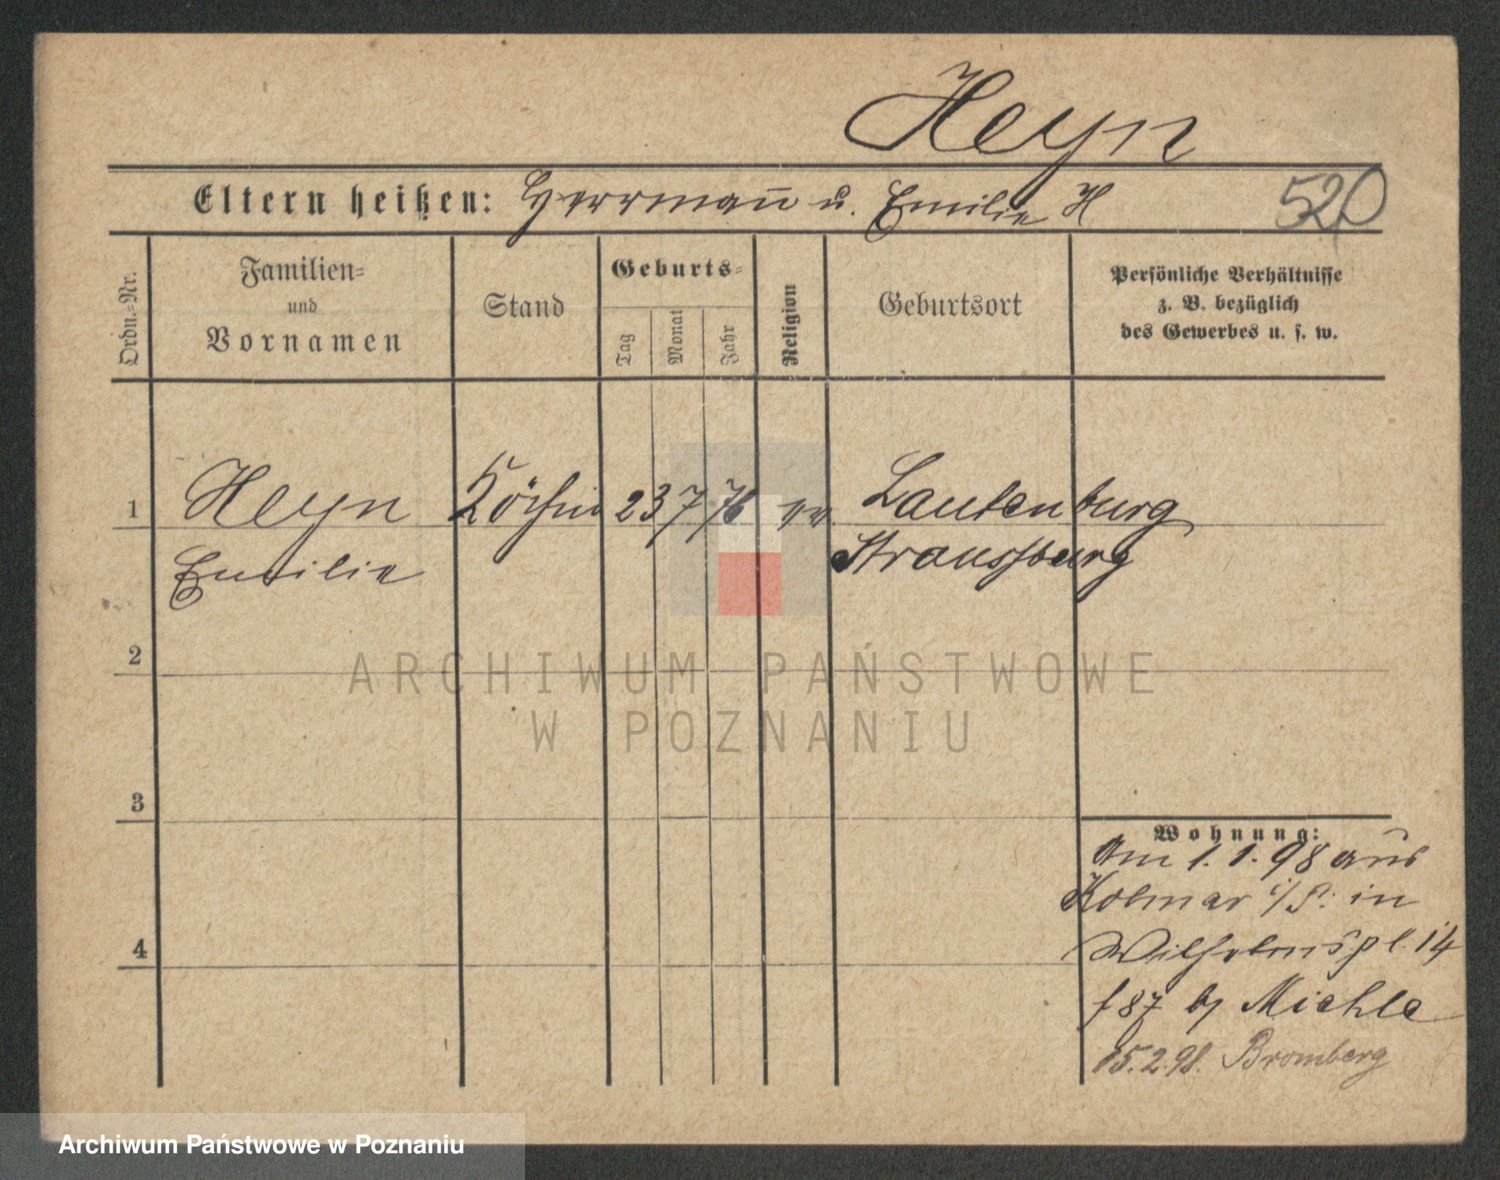 Heyn
Eltern heißen: Herrmann u. Emilie H
520
Ordn.-Nr.
Familien-
und
Vornamen
Stand
Geburts-
Tag
Monat
Jahr
Religion
Geburtsort
Persönliche Verhältnisse
z. B. bezüglich
des Gewerbes u. s. w.
1
Heyn Köchin 23 7 76 ev Lautenburg
Emilie Strassburg
2
ARCHIWUM PAŃSTWOWE
W POZNANIU
3
Wohnung:
Am 1. 1. 98 aus
Kolmar i/P. in
4
Wilhelmspl. 14
b/ Miehle
15.2.98. Bromberg
Archiwum Państwowe w Poznaniu